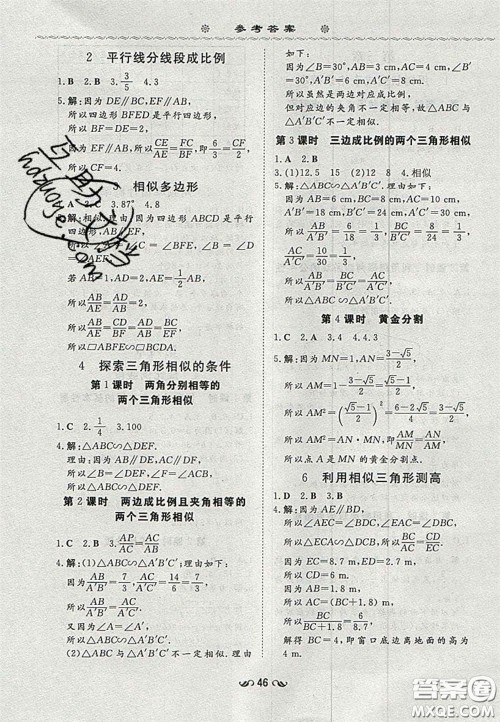 参考答案
2 平行线分线段成比例
1.B 2.B 3.3/5 4.3
5.解:因为DE∥BC,EF∥AB,
所以四边形BFED是平行四边形,
所以BF=DE=2.
因为EF∥AB,所以CE/AE=CF/BF,即6/3=CF/2.
所以CF=4.
3 相似多边形
3.87° 4.5
5.解:相似.理由:因为四边形ABCD是平行
四边形,AB∥EF,
所以
若AB=1,AD=2,AE=1/2,
所以AB/AE=AD/AB=2.
所以AB/AE=CD/EF=AD/AB=BC/BF.
所以□ABFE∽□BCDA.
4 探索三角形相似的条件
第1课时 两角分别相等的
两个三角形相似
1.C 2.1/4 3.C
4.解:△ABC∽△DEF.
理由:因为AB∥DE,BC∥EF,
所以∠B=∠DEF,∠BCA=∠F.
所以△ABC∽△DEF.
第2课时 两边成比例且夹角相等的
两个三角形相似
1.C 2.B 3.AP/AC=AC/AB
4.解:(1)△ABC∽△A′B′C′.理由如下:
因为AB/A′B′=7/3,AC/A′C′=14/6=7/3,
所以AB/A′B′=AC/A′C′.
又因为∠A=∠A′,
所以△ABC∽△A′B′C′.
(2)△ABC与△A′B′C′不一定相似.理由
如下:
因为∠B=30°,AB=2 cm,AC=4 cm,
∠B′=30°,A′B′=4 cm,A′C′=8 cm,
所以虽然是两边对应成比例,
但对应边的夹角不一定相等.故△ABC与
△A′B′C′不一定相似.
第3课时 三边成比例的两个三角形相似
1.A 2.D
3.(1)12.5 15 (2)12 12.5 4.2
5.解:△ABC∽△A′B′C′.理由如下:
因为AB=6 cm,BC=8 cm,AC=10 cm,
A′B′=18 cm,B′C′=24 cm,A′C′=30 cm,
所以AB/A′B′=6/18=1/3,BC/B′C′=8/24=1/3,
AC/A′C′=10/30=1/3.
所以AB/A′B′=BC/B′C′=AC/A′C′.
所以△ABC∽△A′B′C′.
第4课时 黄金分割
1.B 2.A 3.A 4.4.3
5.解:因为MN=1,AM=AN=(3-√5)/2,
所以AM/MN=((3-√5)/2)/((√5-1)/2)=(√5-1)/2,
(AM/MN)²=((√5-1)/2)²=(6-2√5)/4=(3-√5)/2,
所以MN²=AN·MN,即AM/MN=MN/AN.
所以点M是线段AN的黄金分割点.
6 利用相似三角形测高
1.C 2.B 3.A
4.解:因为AE∥BD,
所以△AEC∽△BDC.
所以AC/BC=EC/CD.
因为EC=8.7 m,ED=2.7 m,
所以CD=6 m.
因为AB=1.8 m,
所以AC=(BC+1.8) m.
所以BC/(BC+1.8)=6/8.7.
解得BC=4,即窗口底边离地面的高为
4 m.
46
答案圈
MXQE.COM